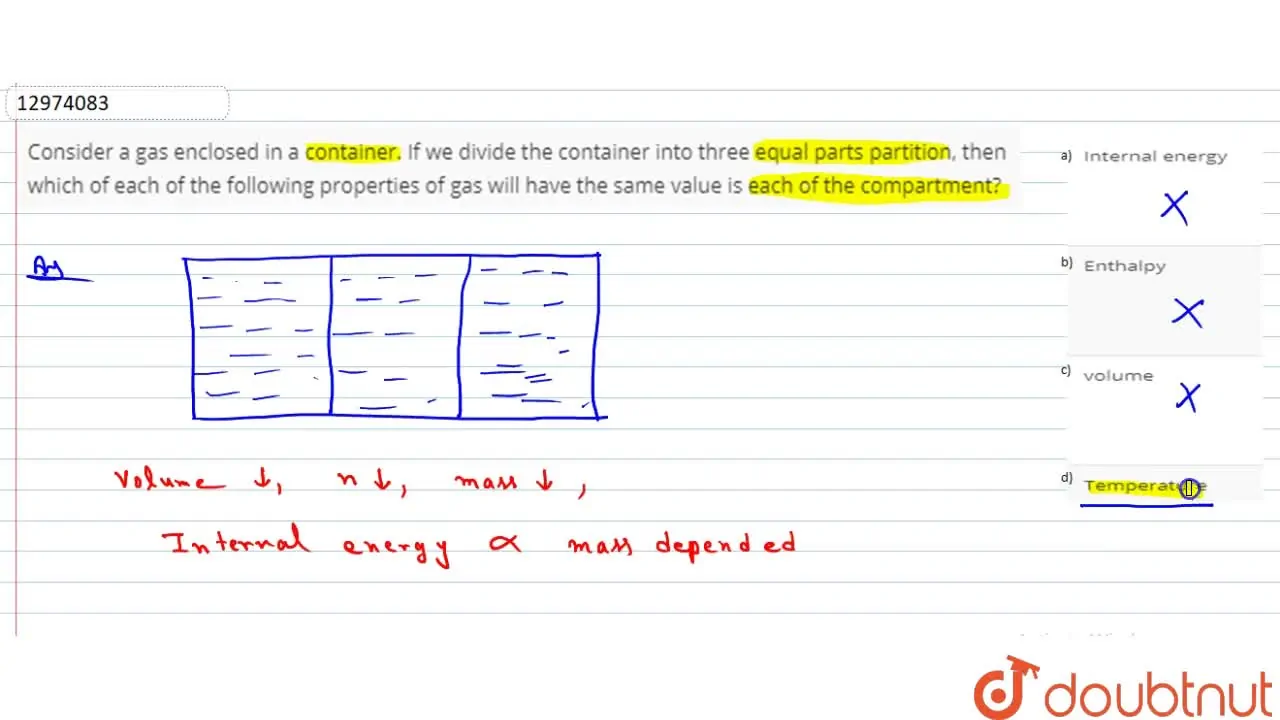 12974083
Consider a gas enclosed in a container. If we divide the container into three equal parts partition, then
which of each of the following properties of gas will have the same value is each of the compartment?
a) Internal energy
X
b) Enthalpy
X
c) volume
X
d) Temperature
Ans
Volume ↓, n ↓, mass ↓,
Internal energy ∝ mass depended
doubtnut